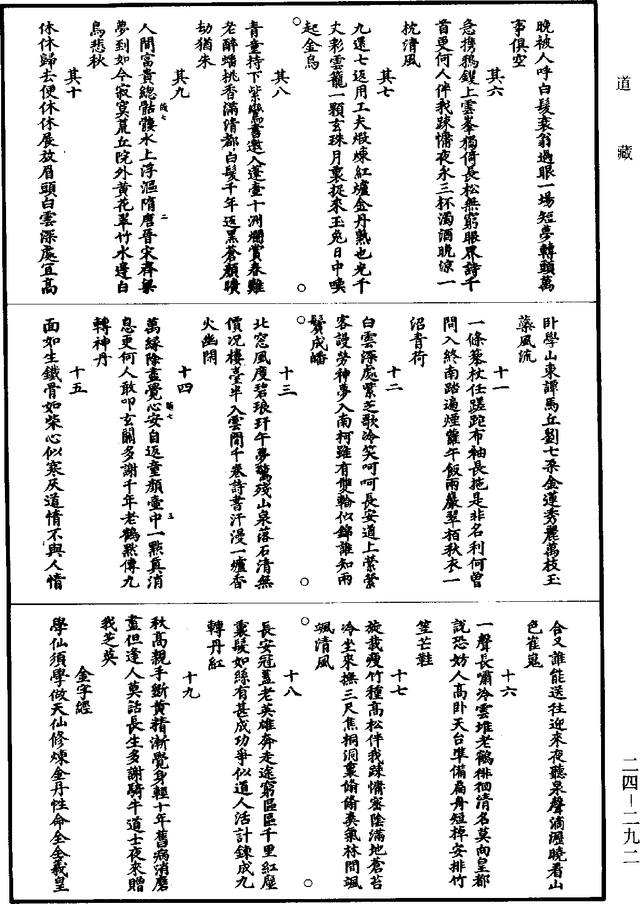 道藏
晚被人呼白髮衰翁過眼一場短夢轉頭萬
事俱空
其六
急攜鴉鍬上雲峯獨倚長松無窮眼界詩千
首更何人伴我踈慵夜永三杯濁酒晚涼一
枕清風
其七
九還七返用工夫煅煉紅爐金丹熟也光千
丈彩雲籠一顆玄珠月裏捉來玉兔日中喚
起金烏
其八
青童持下紫鸞書邀入蓬壺十洲爛賞春難
老醉蟠桃香滿清都白髮千年返黑蒼顏曠
劫猶朱
其九
人間富貴總骷髏水上浮漚隋唐晉宋齊梁
夢到如今寂寞荒丘院外黃花翠竹水邊白
鳥悲秋
其十
休休歸去便休休展放眉頭白雲深處宜高
卧學山東譚馬丘劉七朵金蓮秀麗萬枝玉
蘂風流
十一
一條藜杖任蹉跎布袖長拖是非名利何曾
問入終南踏遍煙蘿午飯雨巖翠栢秋衣一
沼青荷
十二
白雲深處紫芝歌冷笑呵呵長安道上縈縈
客謾勞神夢入南柯雖有雙輪似錦誰知兩
鬢成皤
十三
北窓風度碧琅玕午夢驚殘山泉落石清無
價况樓臺半入雲間千卷詩書汗漫一爐香
火幽閑
十四
萬緣除盡覺心安自返童顏壺中一點真消
息更何人敢叩玄關多謝千年老鶴點傳九
轉神丹
十五
面如生鐵骨如柴心似寒灰道情不與人情
合又誰能送往迎來夜聽泉聲滴瀝曉看山
色崔嵬
十六
一聲長嘯冷雲堆老鶴徘徊清名莫向皇都
說恐妨人高卧天台準備扁舟短棹安排竹
笠芒鞋
十七
旋栽瘦竹種高松伴我踈慵密陰滿地蒼苔
冷坐來撫三尺焦桐洞裏翛翛爽氣林間颯
颯清風
十八
長安冠蓋老英雄奔走途窮區區千里紅塵
裏鬢如絲有甚成功爭似道人活計鍊成九
轉丹紅
十九
秋高親手斸黃精漸覺身輕十年舊病消磨
盡但逢人莫話長生多謝騎牛道士夜來贈
我芝英
金字經
學仙須學做天仙修煉金丹性命全全羲皇
二四—二九二